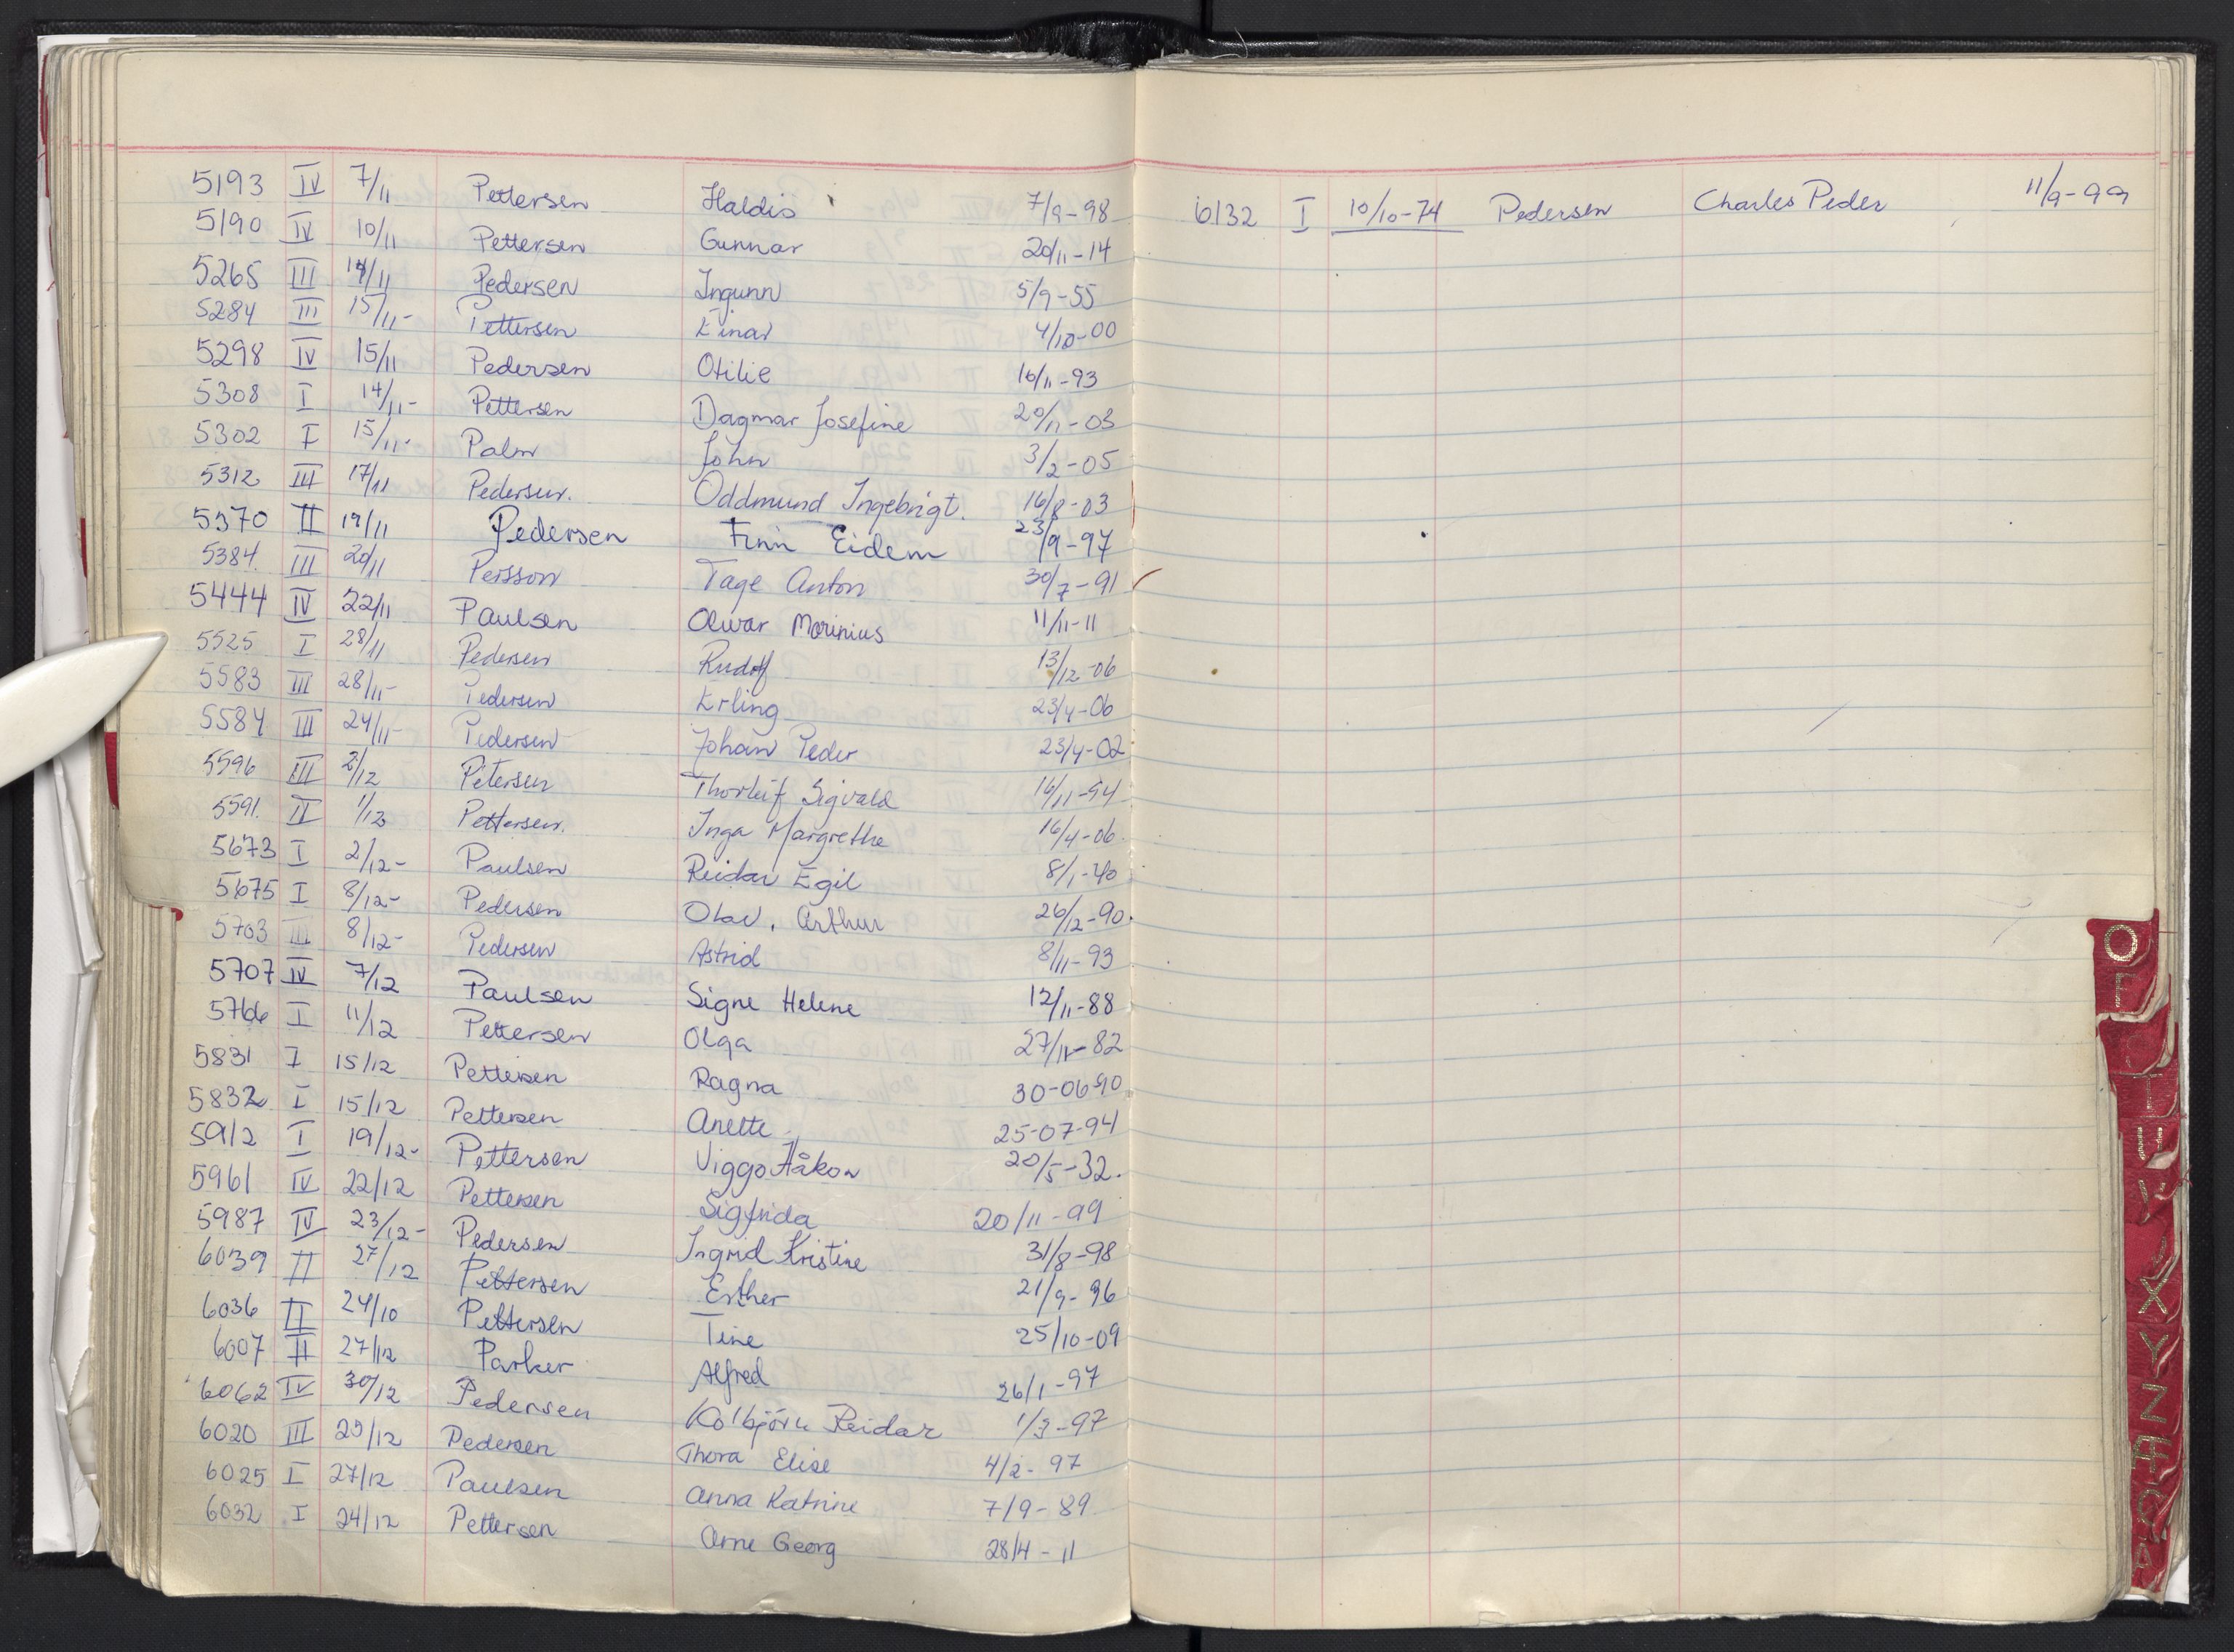 5193 IV 7/11 Pettersen Haldis 7/9-98
5190 IV 10/11 Pettersen Gunnar 20/11-14
5265 III 14/11 Pedersen Ingunn 5/9-55
5284 III 15/11- Pettersen Einar 4/10-00
5298 IV 15/11 Pedersen Otilie 16/11-93
5308 I 14/11- Pettersen Dagmar Josefine 20/11-03
5302 I 15/11- Palm John 3/2-05
5312 III 17/11 Pedersen. Oddmund Ingebrigt. 16/8-03
5370 II 19/11 Pedersen Finn Eidem 23/9-97
5384. III 20/11 Persson Tage Anton 30/7-91
5444 IV 22/11 Paulsen Olvar Marinius 11/11-11
5525 I 28/11 Pedersen Rudolf 13/12-06
5583 III 28/11- Pedersen Erling 23/4-06
5584 III 24/11- Pedersen Johan Peder 23/4-02
5596 III 2/12 Petersen Thorleif Sigvald 16/11-94
5591. II 1/12 Pettersen. Inga Margrethe 16/4-06.
5673 I 2/12- Paulsen Reidar Egil 8/1-40
5675 I 8/12- Pedersen Olav. Arthur 26/12-90.
5703 III 8/12- Pedersen Astrid 8/11-93
5707 IV 7/12 Paulsen Signe Helene 12/11-88
5766 I 11/12 Pettersen Olga 27/11-82
5831 I 15/12 Pettersen Ragna 30-06-90
5832 I 15/12 Pettersen Anette 25-07-94
5912 I 19/12- Pettersen Viggo Håkon 20/5-32.
5961 IV 22/12 Pettersen Sigfrida 20/11-99
5987 IV 23/12- Pedersen Ingrid Kristine 31/8-98
6039 II 27/12 Pettersen Esther 21/9-96
6036 II 24/10 Pettersen Tine 25/10-09
6007 II 27/12 Parker Alfred 26/1-97
6062 IV 30/12 Pedersen Kolbjörn Reidar 1/3-97
6020 III 29/12 Pedersen Thora Elise 4/2-97
6025 I 27/12 Paulsen Anna Katrine 7/9-89
6032 I 24/12 Pettersen Arne Georg 28/4-11
6132 I 10/10-74 Pedersen Charles Peder 11/9-99
O
X
Y
Z
Æ
Ø